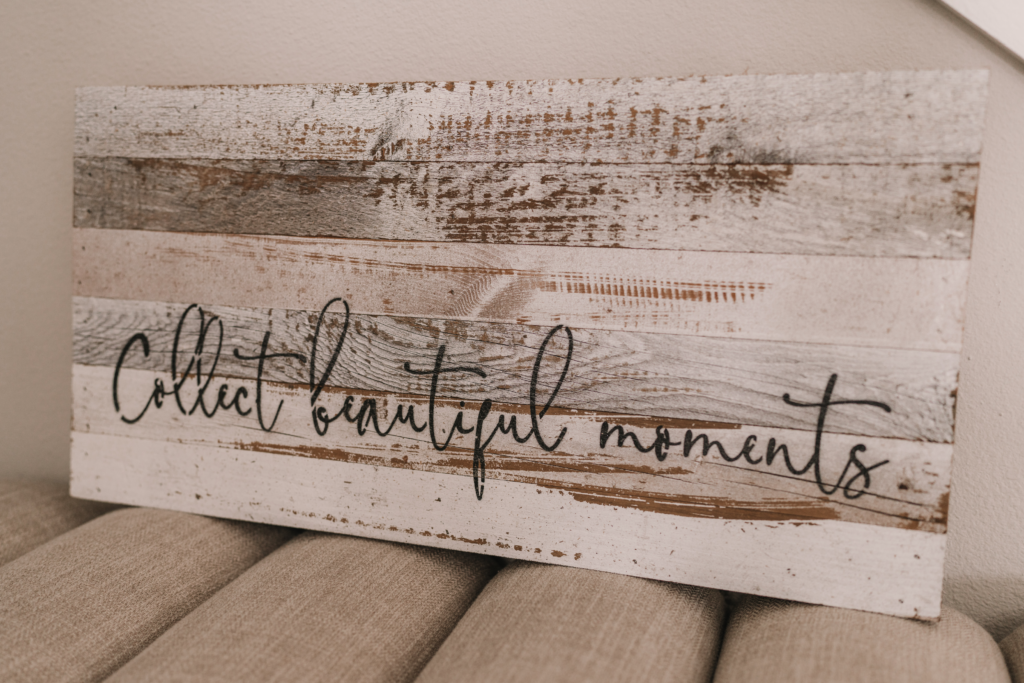 Collect beautiful moments